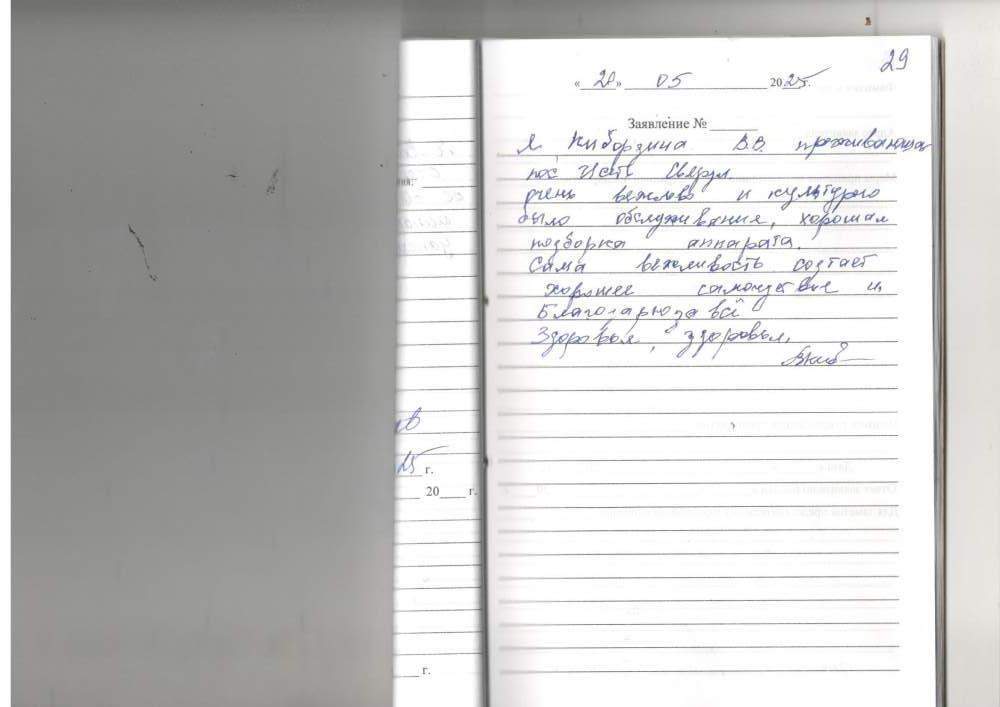 29
« 20 » 05 2025 г.
Заявление № ______
Я Киборзина В.В. проживающая
пос. Исть Свердл.
очень вежливо и культурно
было обслуживания, хорошая
подборка аппарата.
Сама вежливость создает
хорошее самочуствие и
Благодарю за всё
Здоровья, здоровья.
25 г.
20____ г.
____ г.